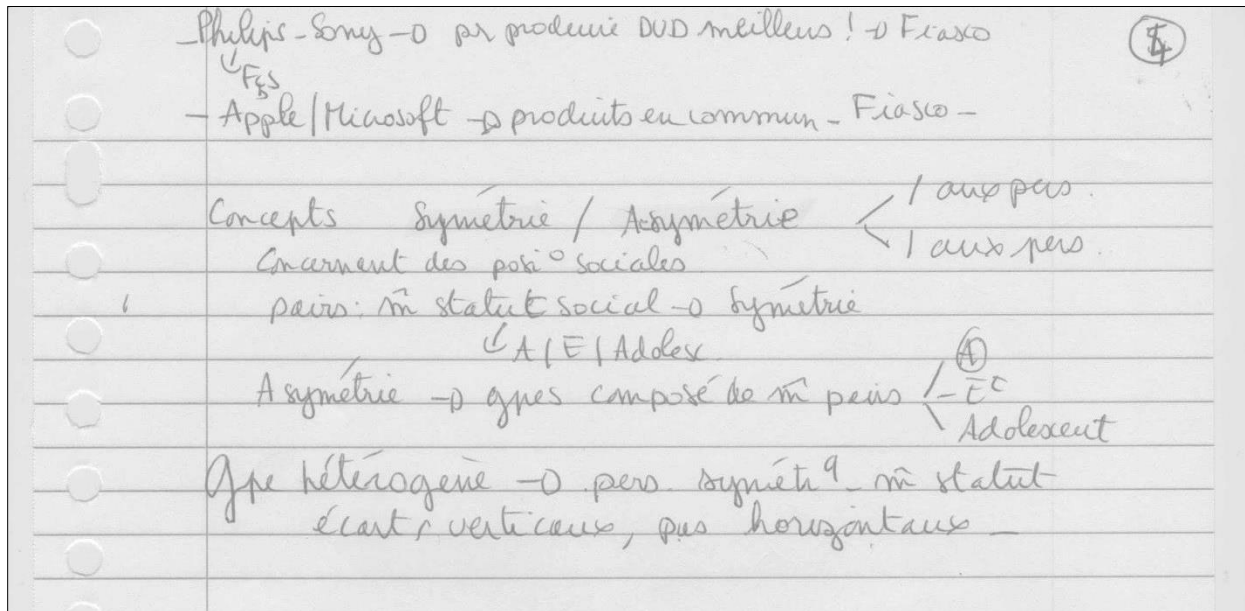 - Philips - Sony → pr produire DVD meilleurs! → Fiasco
- Apple / Microsoft → produits en commun - Fiasco -
Concepts Symétrie / Asymétrie
1 aux pers.
1 aux pers.
Concernant des posi° sociales
pairs: m̂ statut social → Symétrie
A / E / Adolesc
Asymétrie → gpes composé de m̂ pairs
A
- Et
Adolescent
Gpe hétérogène → pers. symét q - m̂ statut
écarts verticaux, pas horizontaux -